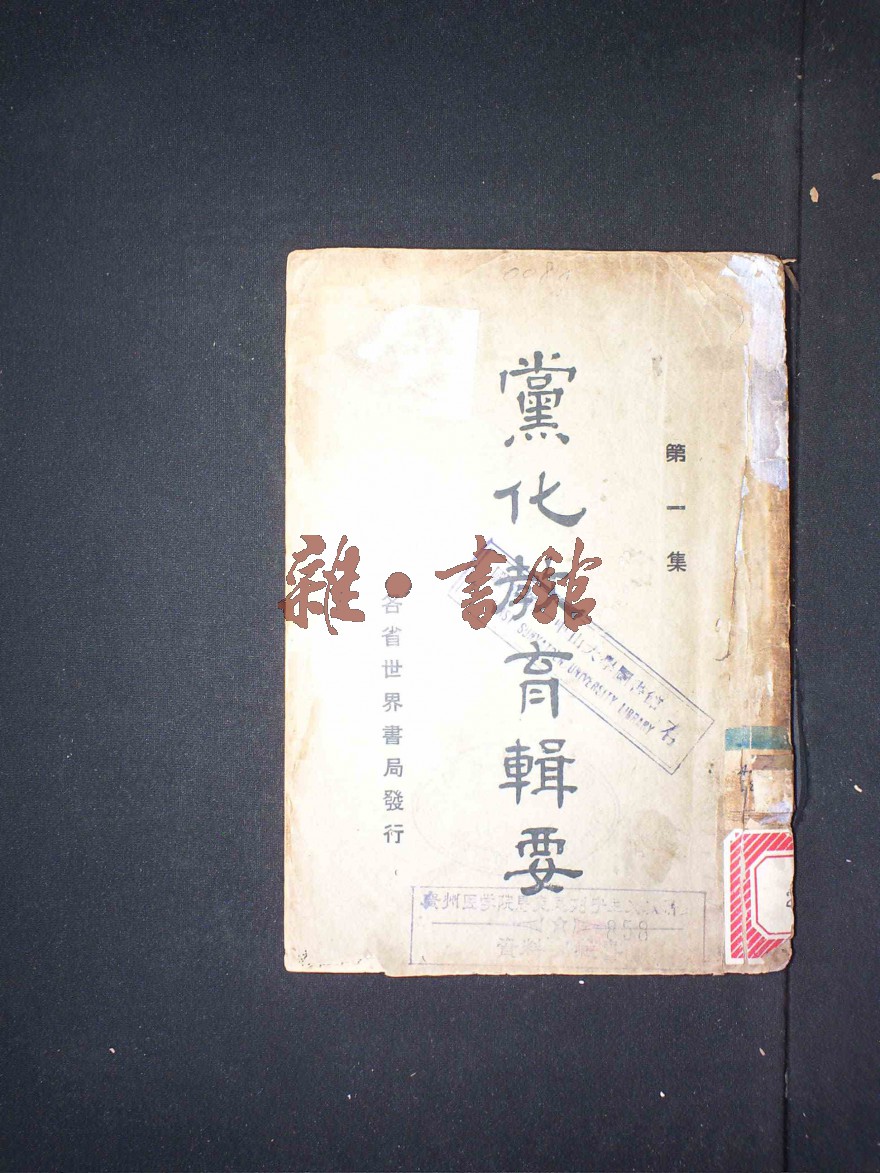 第一集
黨化教育輯要
各省世界書局發行
雜·書館
中山大學圖書館
SUN YATSEN UNIVERSITY LIBRARY
858